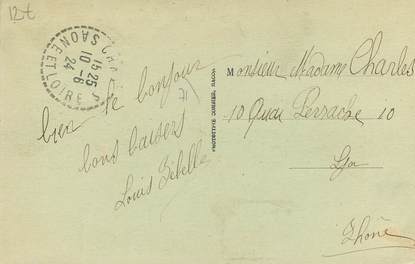 12t
SAONE ET LOIRE
15 25
10-6
24
bien le bonjour
71
bons baisers
Louis
PROTECTIVE
Monsieur Madame Charles
10 Quai Perrache 10
Lyon
Rhône